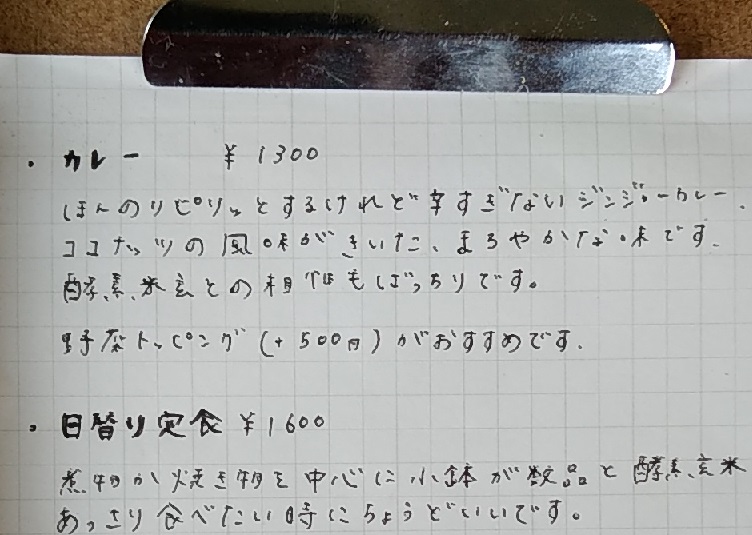 ・カレー ¥1300
ほんのりピリッとするけれど辛すぎないジンジャーカレー。
ココナッツの風味がきいた、まろやかな味です。
酵素米玄との相性もばっちりです。
野菜トッピング(+500円)がおすすめです。
・日替り定食 ¥1600
煮物か焼き物を中心に小鉢が数品と酵素玄米
あっさり食べたい時にちょうどいいです。